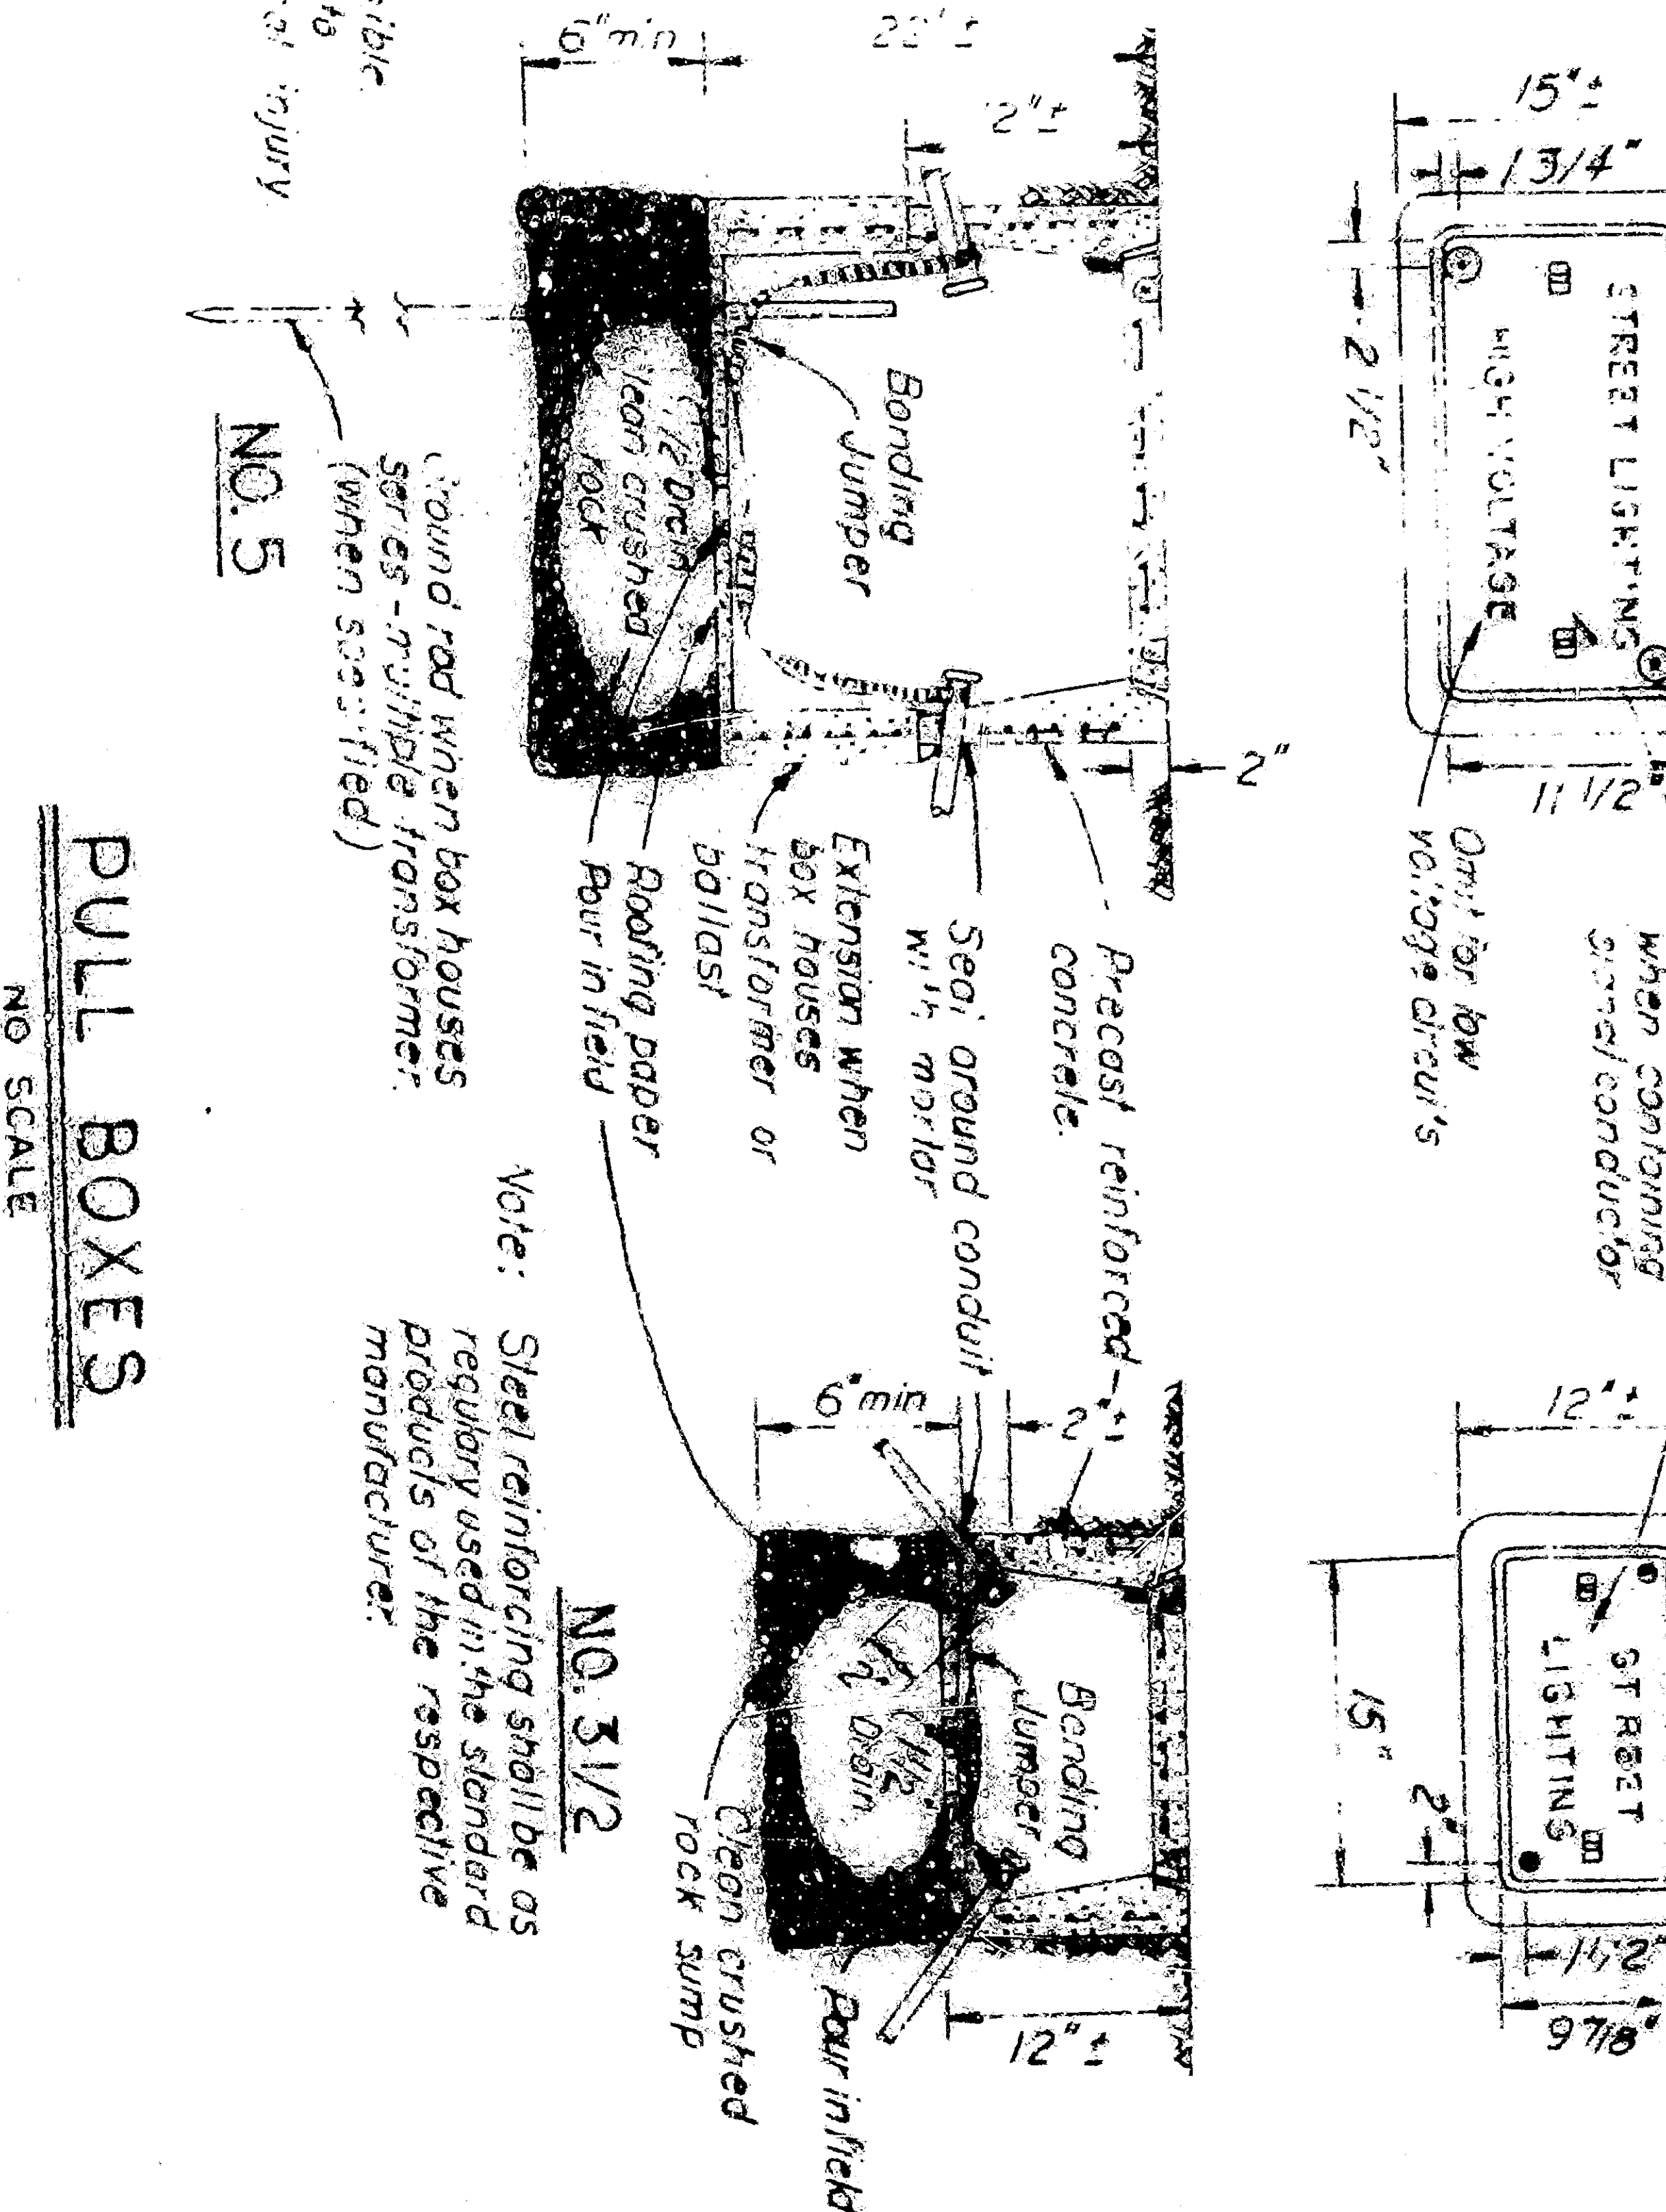 15"±
1 3/4"
2 1/2"
STREET LIGHTING
HIGH VOLTAGE
11 1/2"
Omit for low
voltage circuits
when containing
signal conductor
12"±
15"
2"
STREET
LIGHTING
1 1/2"
9 7/8"
6" min
22"±
12"±
2"
Bonding
Jumper
Drain
clean crushed
rock
Precast reinforced
concrete.
Seal around conduit
with mortar
Extension when
box houses
transformer or
ballast
Roofing paper
Pour in field
Ground rod when box houses
series-multiple transformer.
(when specified)
NO. 5
6" min
2"±
12"±
Bonding
Jumper
Drain
Pour in field
Clean crushed
rock sump
NO. 3 1/2
Note: Steel reinforcing shall be as
regulary used in the standard
products of the respective
manufacturer.
to
injury
PULL BOXES
NO SCALE